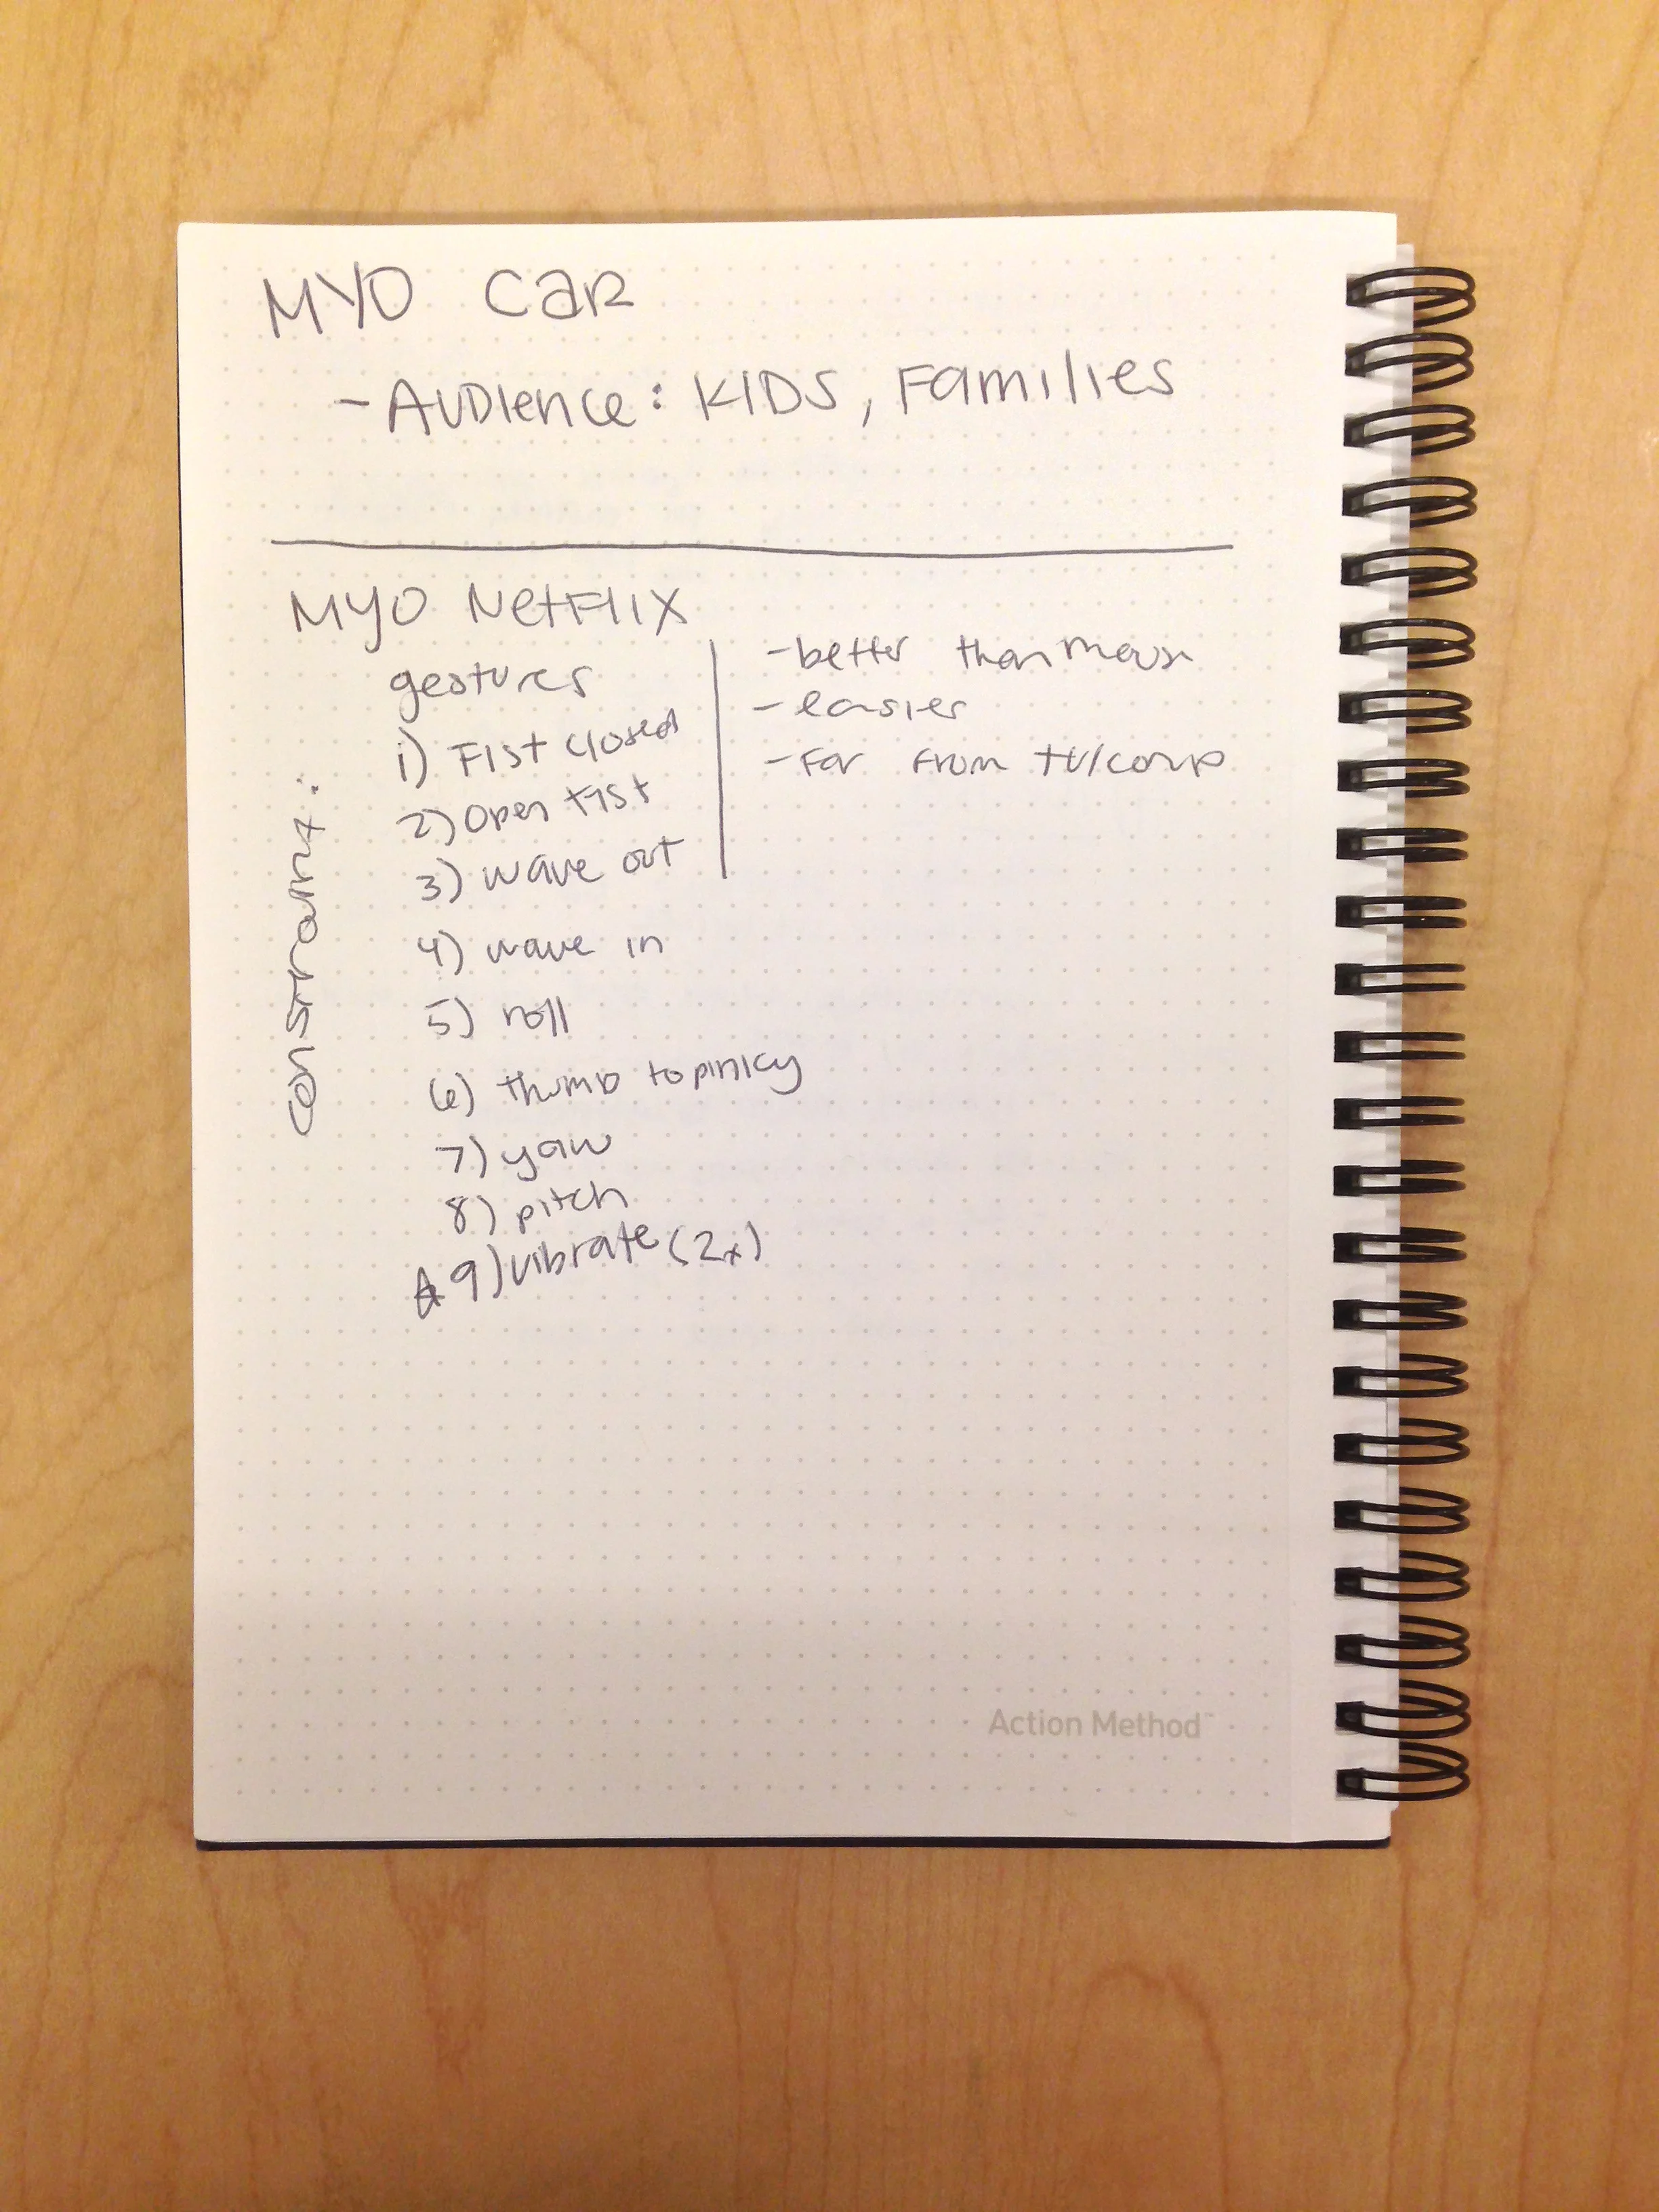 MYO CAR
- AUDIENCE: KIDS, FAMILIES
MYO NETFLIX
gestures
1) Fist closed
2) Open fist
3) wave out
4) wave in
5) roll
6) thumb to pinky
7) yaw
8) pitch
☆ 9) vibrate (2x)
constraint:
- better than mouse
- easier
- far from tv/comp
Action Method™